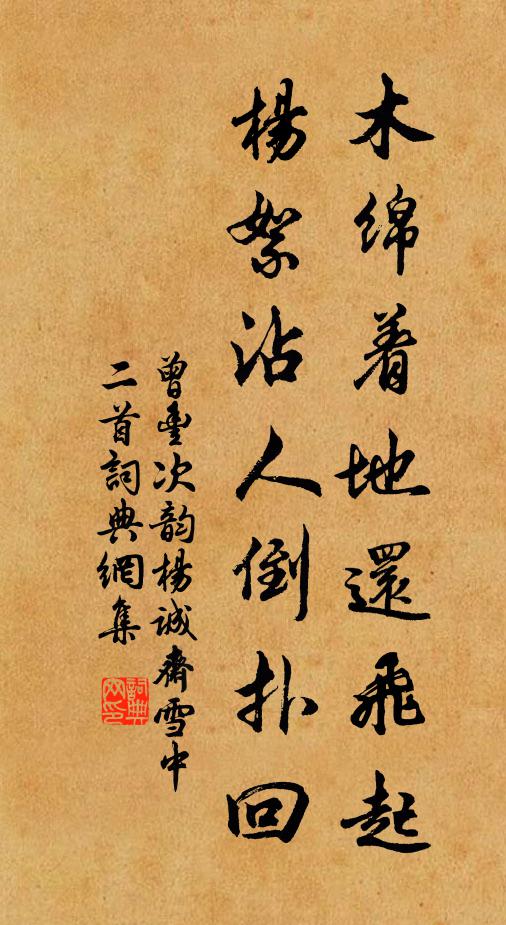 木綿着地還飛起
楊絮沾人倒扑回
曾豐次韵楊誠齋雪中
二首詞典網集
詞典
网印